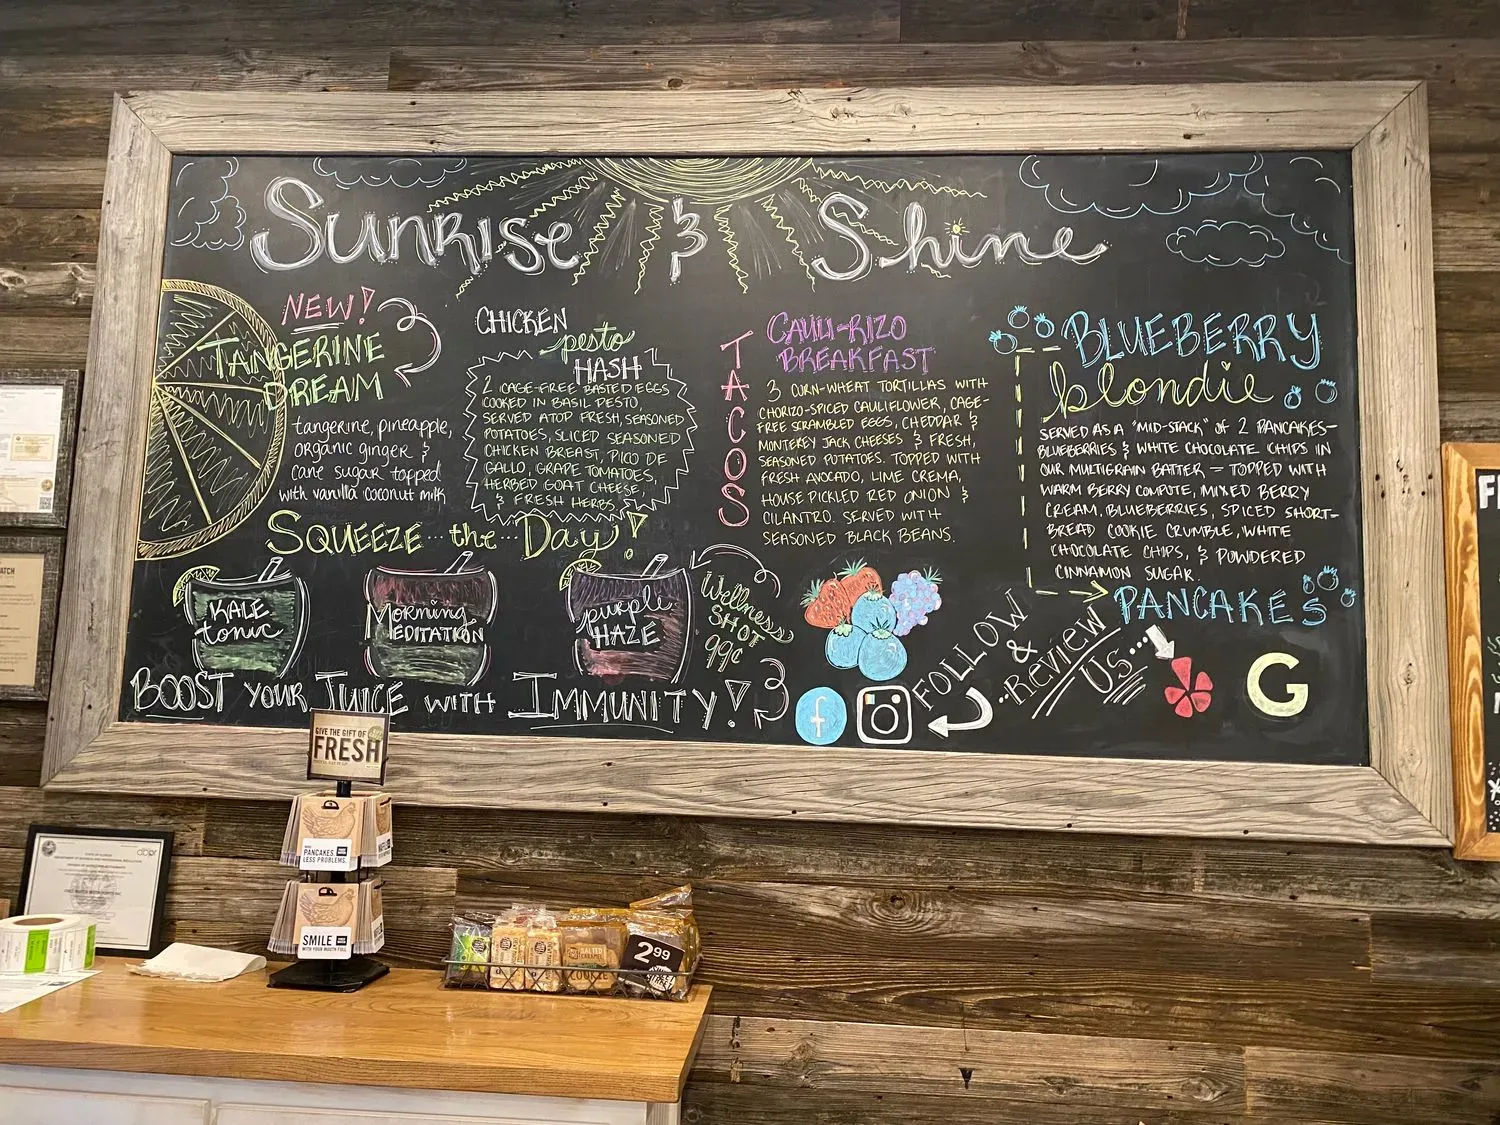 Sunrise & Shine
NEW!
TANGERINE
DREAM
tangerine, pineapple,
organic ginger &
cane sugar topped
with vanilla coconut milk
CHICKEN
pesto
HASH
2 CAGE-FREE BASTED EGGS
COOKED IN BASIL PESTO,
SERVED ATOP FRESH, SEASONED
POTATOES, SLICED SEASONED
CHICKEN BREAST, PICO DE
GALLO, GRAPE TOMATOES,
HERBED GOAT CHEESE,
& FRESH HERBS
TACOS
CAULI-RIZO
BREAKFAST
3 CORN-WHEAT TORTILLAS WITH
CHORIZO-SPICED CAULIFLOWER, CAGE-
FREE SCRAMBLED EGGS, CHEDDAR &
MONTEREY JACK CHEESES & FRESH,
SEASONED POTATOES. TOPPED WITH
FRESH AVOCADO, LIME CREMA,
HOUSE PICKLED RED ONION &
CILANTRO. SERVED WITH
SEASONED BLACK BEANS.
BLUEBERRY
blondie
SERVED AS A "MID-STACK" OF 2 PANCAKES-
BLUEBERRIES & WHITE CHOCOLATE CHIPS IN
OUR MULTIGRAIN BATTER - TOPPED WITH
WARM BERRY COMPOTE, MIXED BERRY
CREAM, BLUEBERRIES, SPICED SHORT-
BREAD COOKIE CRUMBLE, WHITE
CHOCOLATE CHIPS, & POWDERED
CINNAMON SUGAR.
PANCAKES
SQUEEZE ... the ... Day!
KALE
tonic
Morning
MEDITATION
purple
HAZE
Wellness
SHOT
99¢
BOOST YOUR JUICE WITH IMMUNITY!
f
FOLLOW
&
REVIEW
US...
G
GIVE THE GIFT OF
FRESH
PANCAKES.
LESS PROBLEMS.
SMILE
WITH YOUR MOUTH FULL
SALTED
CARAMEL
COOKIE
2.99